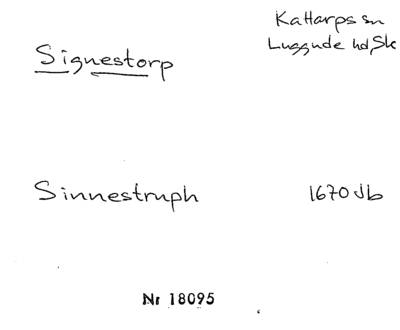 Kattarps sn
Luggude hd, Sk
Signestorp
Sinnestruph 1670 Jb
Nr 18095